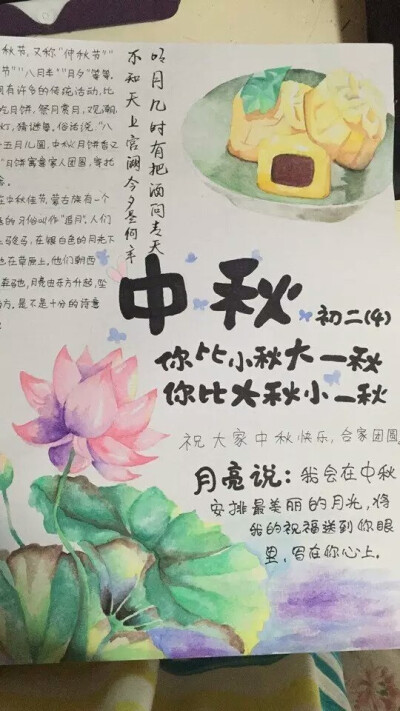 秋节，又称“仲秋节”“
节”“八月半”“月夕”等等。
有许多的传统活动，比
吃月饼，祭月赏月，观潮，
灯，猜谜等。俗话说，“八
十五月儿圆，中秋月饼香又
”月饼寓意家人团圆，寄托
念。
在中秋佳节，蒙古族有一个
的习俗叫作“追月”。人们
上骏马，在银白色的月光下
在草原上。他们朝西
奔驰，月亮由东方升起，坠
方，是不是十分的诗意
明月几时有把酒问青天
不知天上宫阙今夕是何年
中秋
初二(4)
你比小秋大一秋
你比大秋小一秋
祝大家中秋快乐，合家团圆
月亮说：我会在中秋
安排最美丽的月光，将
我的祝福送到你眼
里，写在你心上。